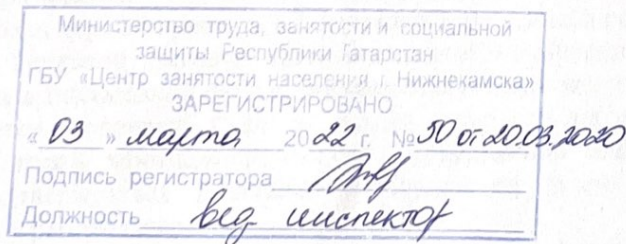 Министерство труда, занятости и социальной
защиты Республики Татарстан
ГБУ «Центр занятости населения г. Нижнекамска»
ЗАРЕГИСТРИРОВАНО
« 03 » марта 2022 г. № 50 от 20.03.2020
Подпись регистратора
Должность вед инспектор